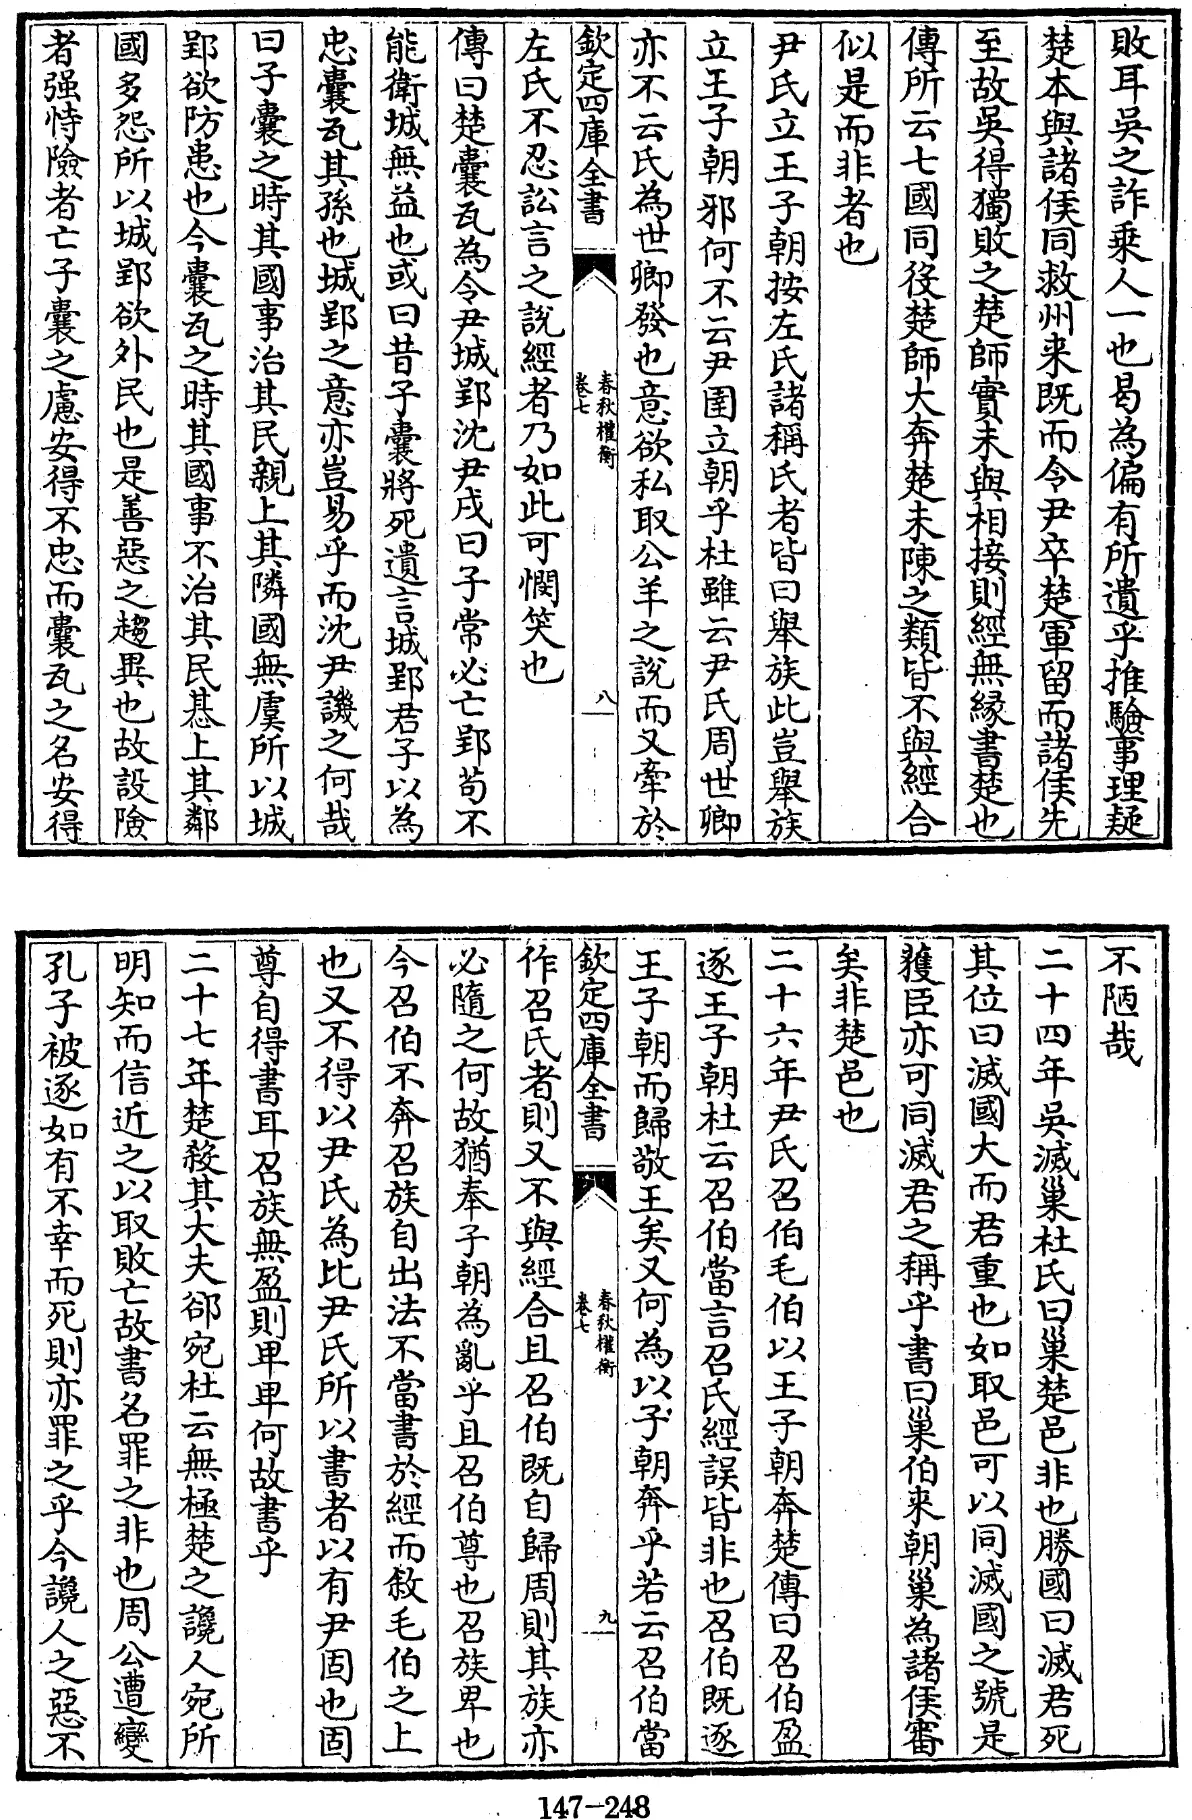 敗耳吳之詐乗人一也曷為偏有所遺乎推驗事理疑
楚本與諸侯同救州来既而令尹卒楚軍留而諸侯先
至故吳得獨敗之楚師實未與相接則經無縁書楚也
傳所云七國同役楚師大奔楚未陳之類皆不與經合
似是而非者也
尹氏立王子朝按左氏諸稱氏者皆曰舉族此豈舉族
立王子朝邪何不云尹圉立朝乎杜雖云尹氏周世卿
亦不云氏為世卿發也意欲私取公羊之說而又牽於
欽定四庫全書
春秋權衡
卷七
八
左氏不忍訟言之說經者乃如此可憫笑也
傳曰楚囊瓦為令尹城郢沈尹戌曰子常必亡郢苟不
能衛城無益也或曰昔子囊將死遺言城郢君子以為
忠囊瓦其孫也城郢之意亦豈易乎而沈尹譏之何哉
曰子囊之時其國事治其民親上其隣國無虞所以城
郢欲防患也今囊瓦之時其國事不治其民惎上其鄰
國多怨所以城郢欲外民也是善惡之趨異也故設險
者强恃險者亡子囊之慮安得不忠而囊瓦之名安得
不陋哉
二十四年吳滅巢杜氏曰巢楚邑非也勝國曰滅君死
其位曰滅國大而君重也如取邑可以同滅國之號是
獲臣亦可同滅君之稱乎書曰巢伯來朝巢為諸侯審
矣非楚邑也
二十六年尹氏召伯毛伯以王子朝奔楚傳曰召伯盈
逐王子朝杜云召伯當言召氏經誤皆非也召伯既逐
王子朝而歸敬王矣又何為以子朝奔乎若云召伯當
欽定四庫全書
春秋權衡
卷七
九
作召氏者則又不與經合且召伯既自歸周則其族亦
必隨之何故猶奉子朝為亂乎且召伯尊也召族卑也
今召伯不奔召族自出法不當書於經而敘毛伯之上
也又不得以尹氏為比尹氏所以書者以有尹固也固
尊自得書耳召族無盈則卑卑何故書乎
二十七年楚殺其大夫郤宛杜云無極楚之讒人宛所
明知而信近之以取敗亡故書名罪之非也周公遭變
孔子被逐如有不幸而死則亦罪之乎今讒人之惡不
147-248